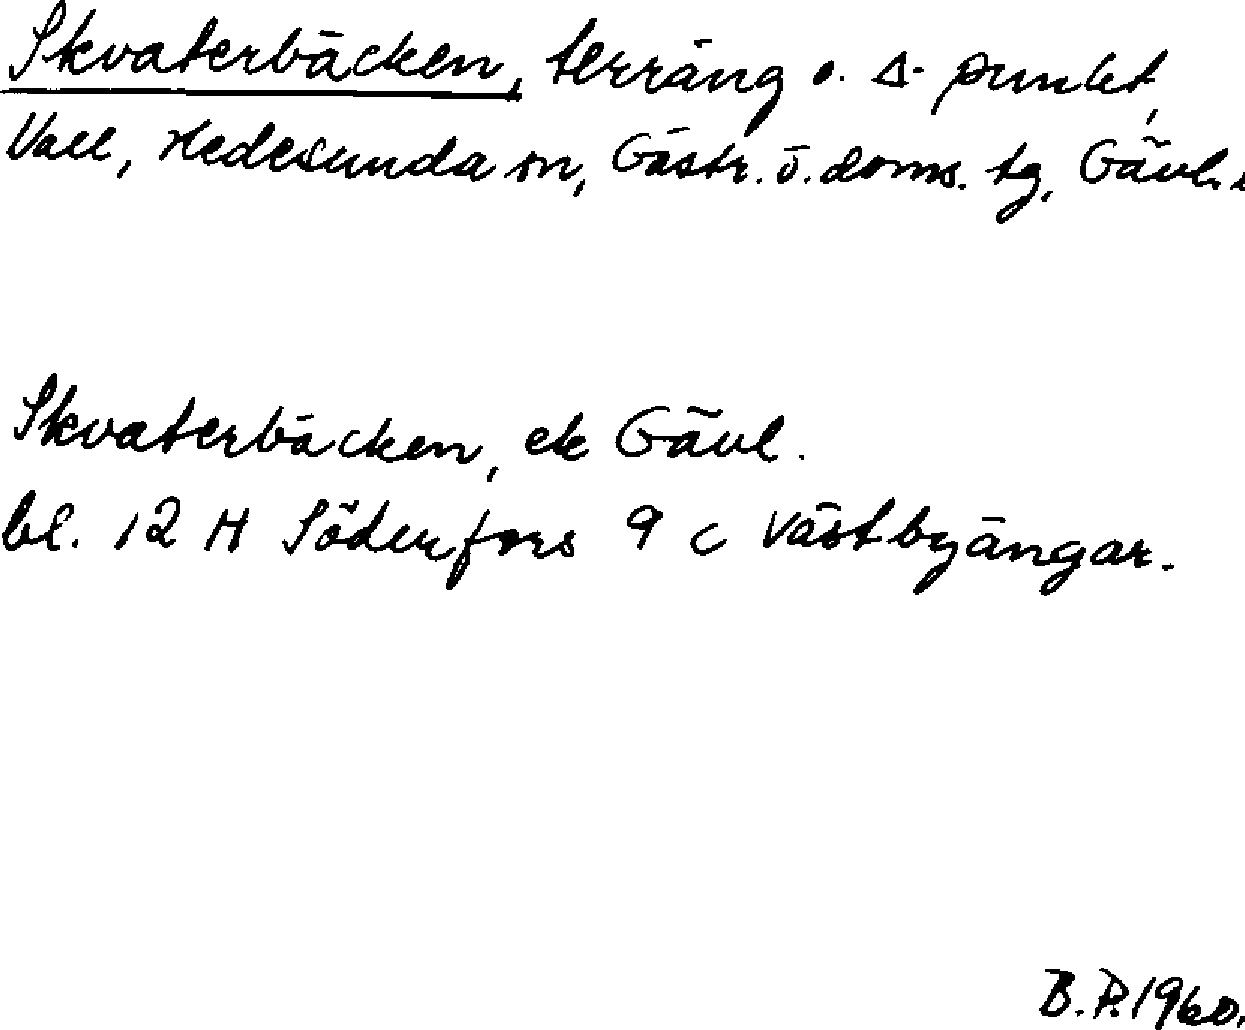 Skvaterbäcken, terräng o. Δ-punkt,
Vall, Hedesunda sn, Gästr. ö. doms. tg, Gävl.
Skvaterbäcken, ek Gävl.
bl. 12 H Söderfors 9 c Västbyängar.
B.P. 1960.